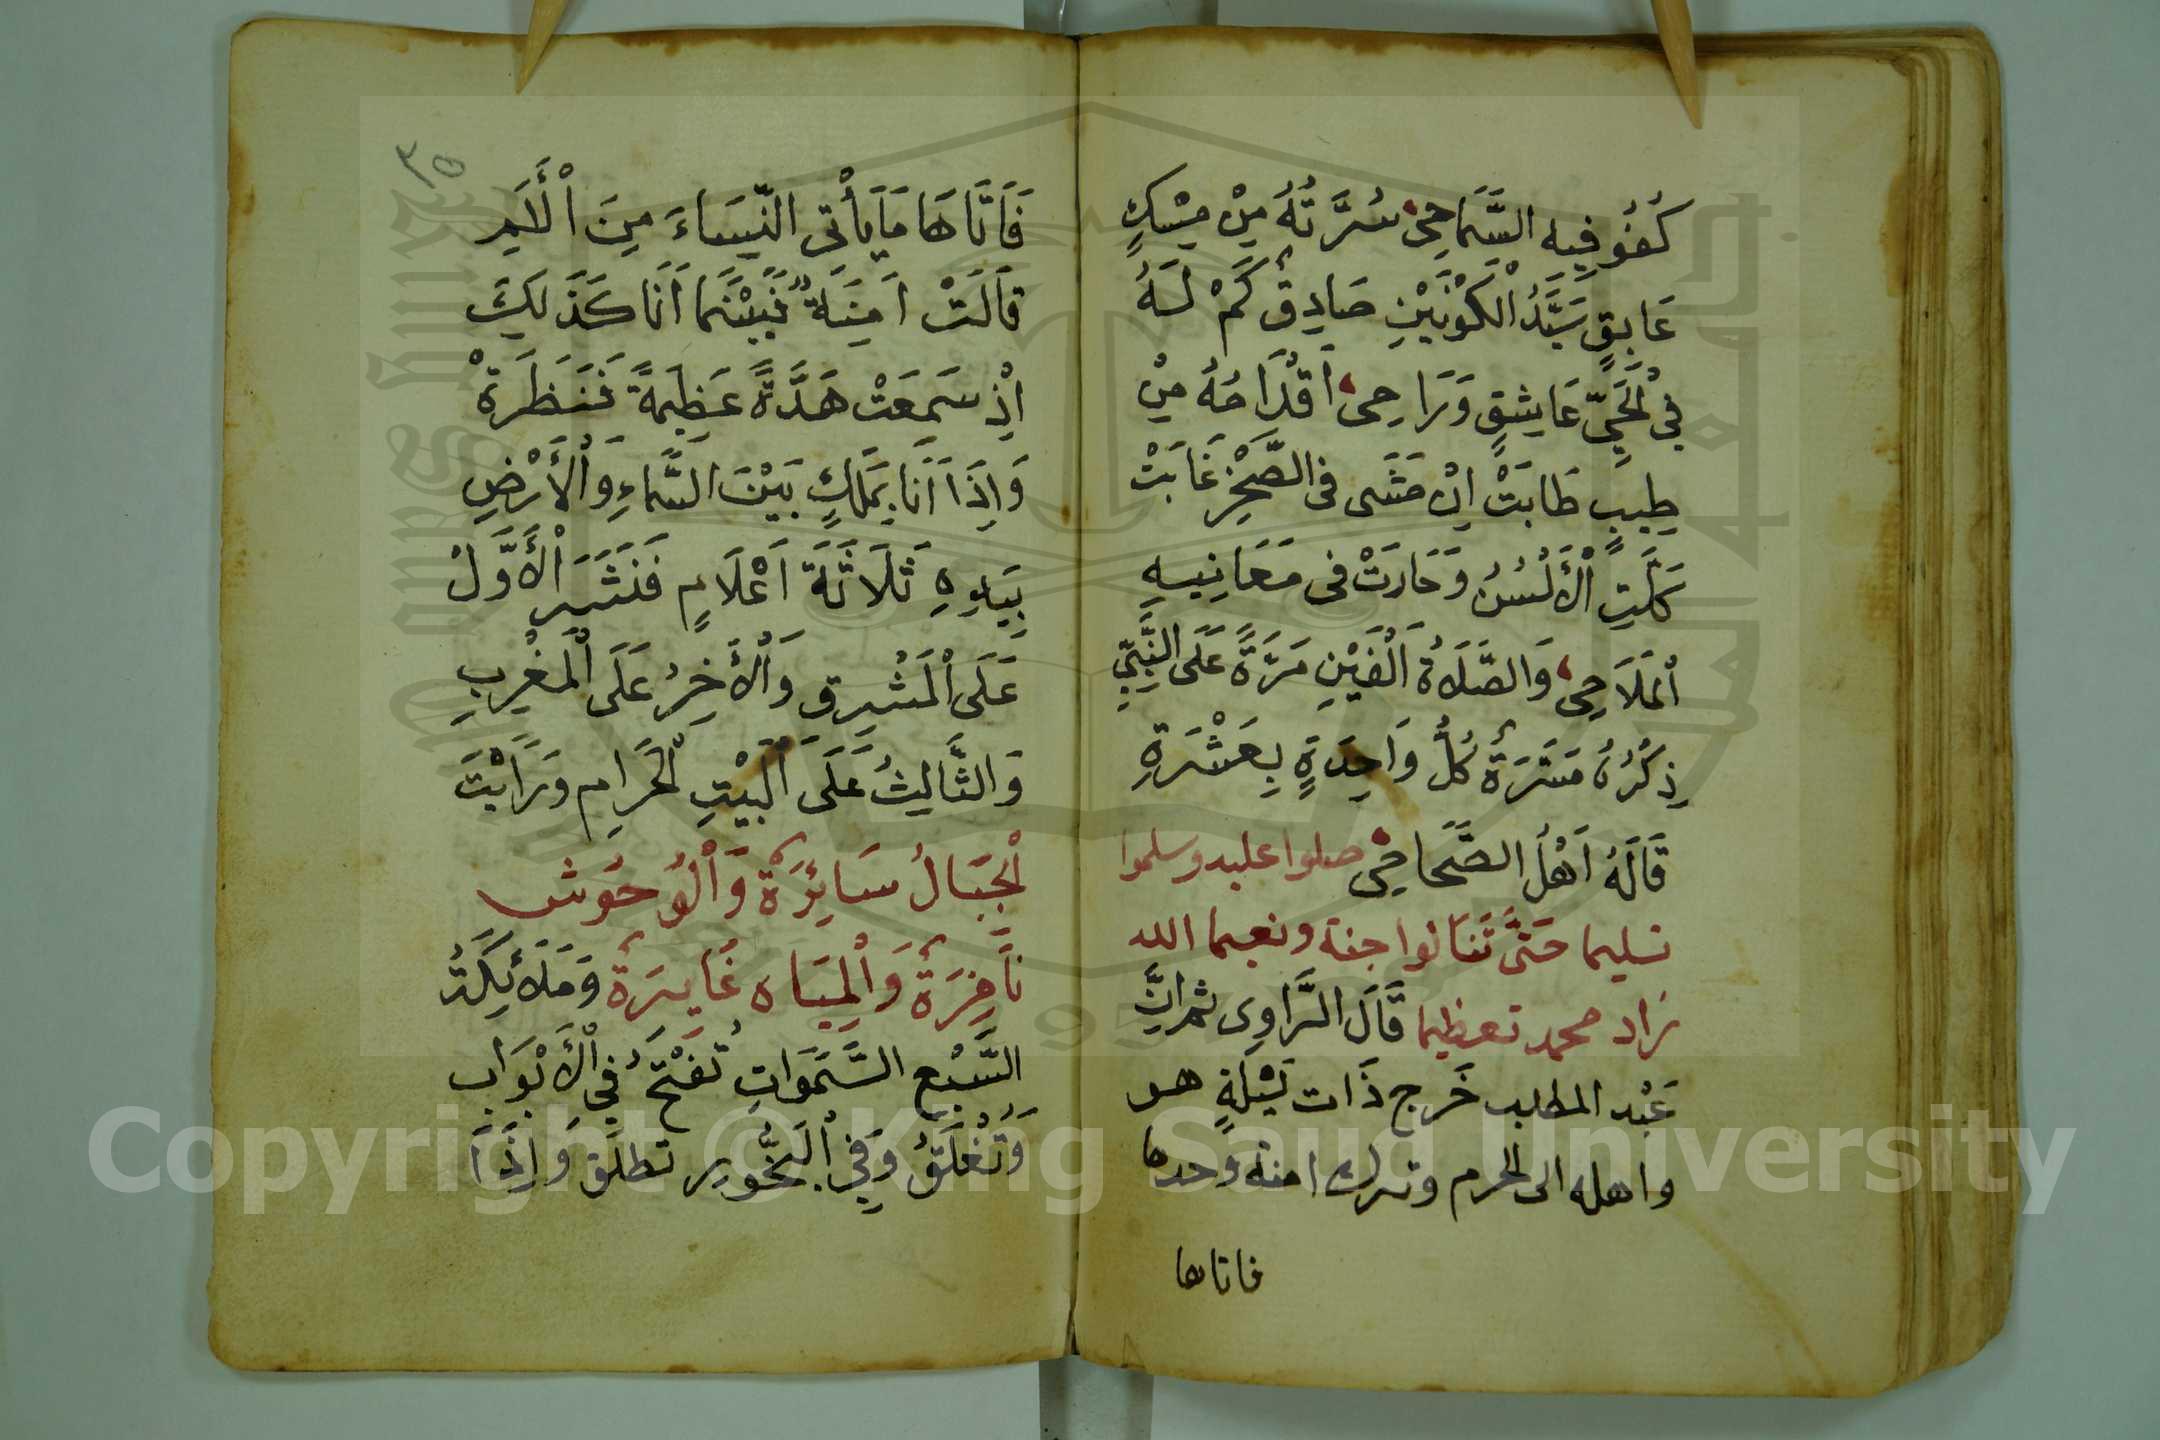 كُفُو فِيهِ السَّمَاحِى سُرَّتُهُ مِنْ مِسْكٍ
عَابِقٍ سَيَّدُ الْكَوْنَيْنِ صَادِقٌ كَمْ لَهُ
فِي الْحَيِّ عَاشِقٍ وَرَاحِى أَقْدَاحُهُ مِنْ
طِيبٍ طَابَتْ اِنْ مَشَى فى الصَّخْرِ غَابَتْ
كَلَّتِ الْأَلْسُنُ وَحَارَتْ فى مَعَانِيهِ
الْمَلَاحِى وَالصَّلَاةُ أَلْفَيْنِ مَرَّةً عَلَى النَّبِيِّ
ذِكْرُهُ مَسَرَةٌ كُلُّ وَاحِدَةٍ بِعَشْرَةٍ
قَالَهُ اَهْلُ الصَّحَاحِى صلوا عليه وسلموا
تسليما حَتَّى تَنَالوا جنة ونعيما الله
زاد محمد تعظيما قَالَ الرَّاوِى ثم اِنَّ
عَبْد المطلب خَرج ذَات لَيْلَةٍ هو
واهله الى الحرم وترك امنة وحدها
فاتاها
٣٥
فَأَتَاهَا مَا يَأْتى النِّسَاءَ مِنَ الْأَلَمِ
قَالَتْ اَمِنَةٌ فَبَيْنَمَا اَنَا كَذَلِكَ
اِذْ سَمَعَتْ هَدَّةً عَظِمَةً فَنَظَرَةْ
وَاِذَا اَنَا بِمَلَكٍ بَيْنَ السَّمَاءِ وَالْأَرْضِ
بِيَدِهِ ثَلَاثَةَ اَعْلَامٍ فَنَشَرَ الْأَوَّلْ
عَلَى الْمَشْرِقِ وَالْأَخِرُ عَلَى الْمَغْرِبِ
وَالثَّالِثُ عَلَى الْبَيْتِ الْحَرَامِ وَرَاَيْتَ
الْجِبَالُ سَائِرَةٌ وَالْوُحُوش
نَافِرَةٌ وَالْمِيَاه غَايِرَةٌ وَمَلَائِكَةُ
السَّبْعِ السَّمَوَاتِ تُفَتْحُ فِي الْأَبْوَابِ
وَتُغْلَقُ وَفِي الْبُحُورِ تطلق وَاِذَا
Copyright © King Saud University
1957